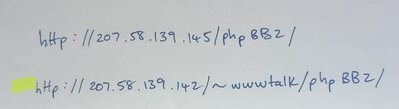 http://207.58.139.145/phpBB2/
http://207.58.139.142/~wwwtalk/phpBB2/